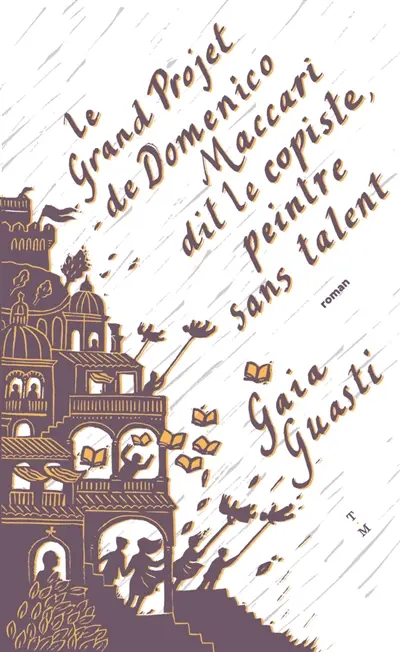 le
Grand Projet
de Domenico
Maccari
dit le copiste,
peintre
sans talent
roman
Gaia
Guasti
T
M